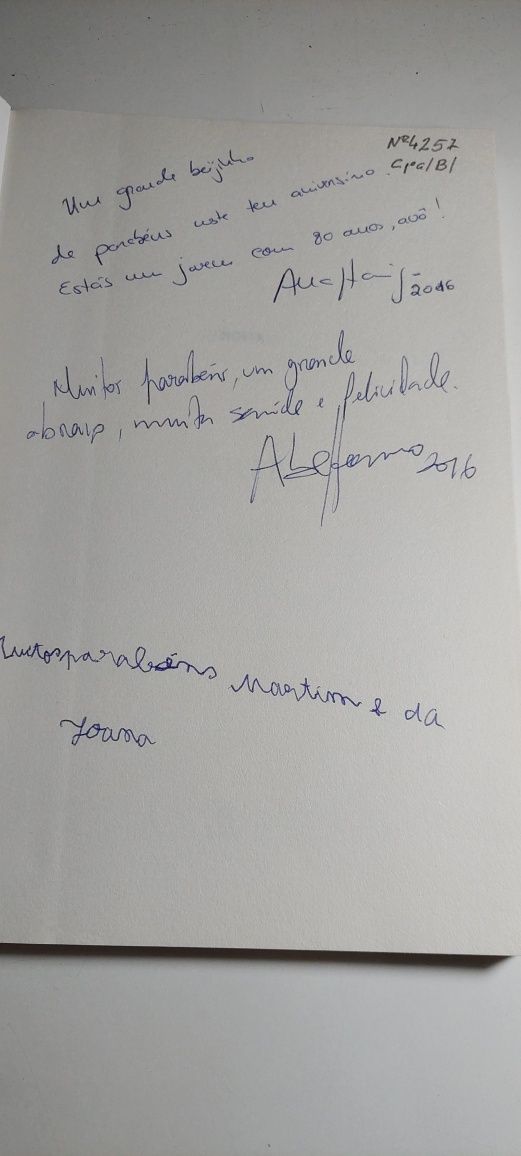 Nº4257
Um grande beijinho
de parabéns neste teu aniversário.
Estás um jovem com 80 anos, avô!
2016
Muitos parabéns, um grande
abraço, muita saúde e felicidade.
2016
Muitos parabéns Martim e da
Joana